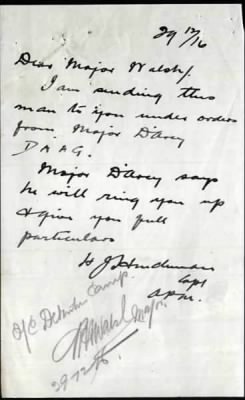 29 12/16
Dear Major Walsh/
I am sending this
man to you under orders
from Major D'Arcy
D A A G.
Major D'Arcy says
he will ring you up
& give you full
particulars
H J
Capt
A.P.M.
O/C Detention Camp.
Major
29.12.16.